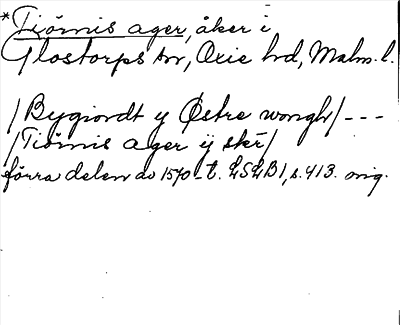 *Tiörnis ager, åker i
Glostorps sn, Oxie hd, Malm. l.
/Bygiordt y Østre wongh/ ---
/Tiörnis ager ÿ sker/
förra delen av 1570-t. LSLB1, s. 413. orig.